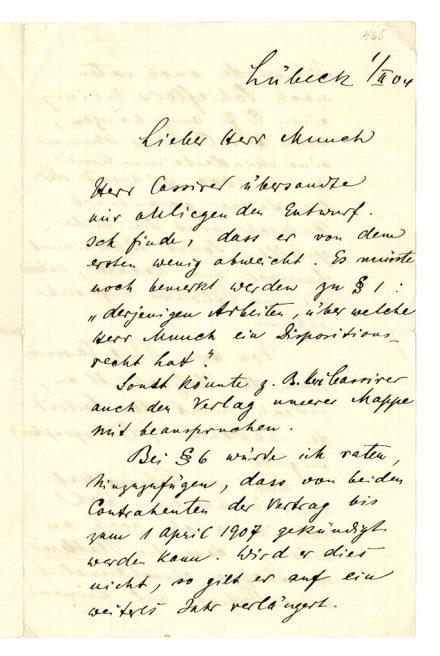 466
Lübeck 1/II 04
Lieber Herr Munch
Herr Cassirer übersandte
mir obliegenden Entwurf.
Ich finde, dass er von dem
ersten wenig abweicht. Es müsste
noch bemerkt werden zu § 1:
„derjenigen Arbeiten, über welche
Herr Munch ein Dispositions-
recht hat."
Sonst könnte z. B. Cassirer
auch den Verlag unserer Mappe
mit beanspruchen.
Bei § 6 würde ich raten,
hinzuzufügen, dass von beiden
Contrahenten der Vertrag bis
zum 1 April 1907 gekündigt
werden kann. Wird er dies
nicht, so gilt er auf ein
weiteres Jahr verlängert.